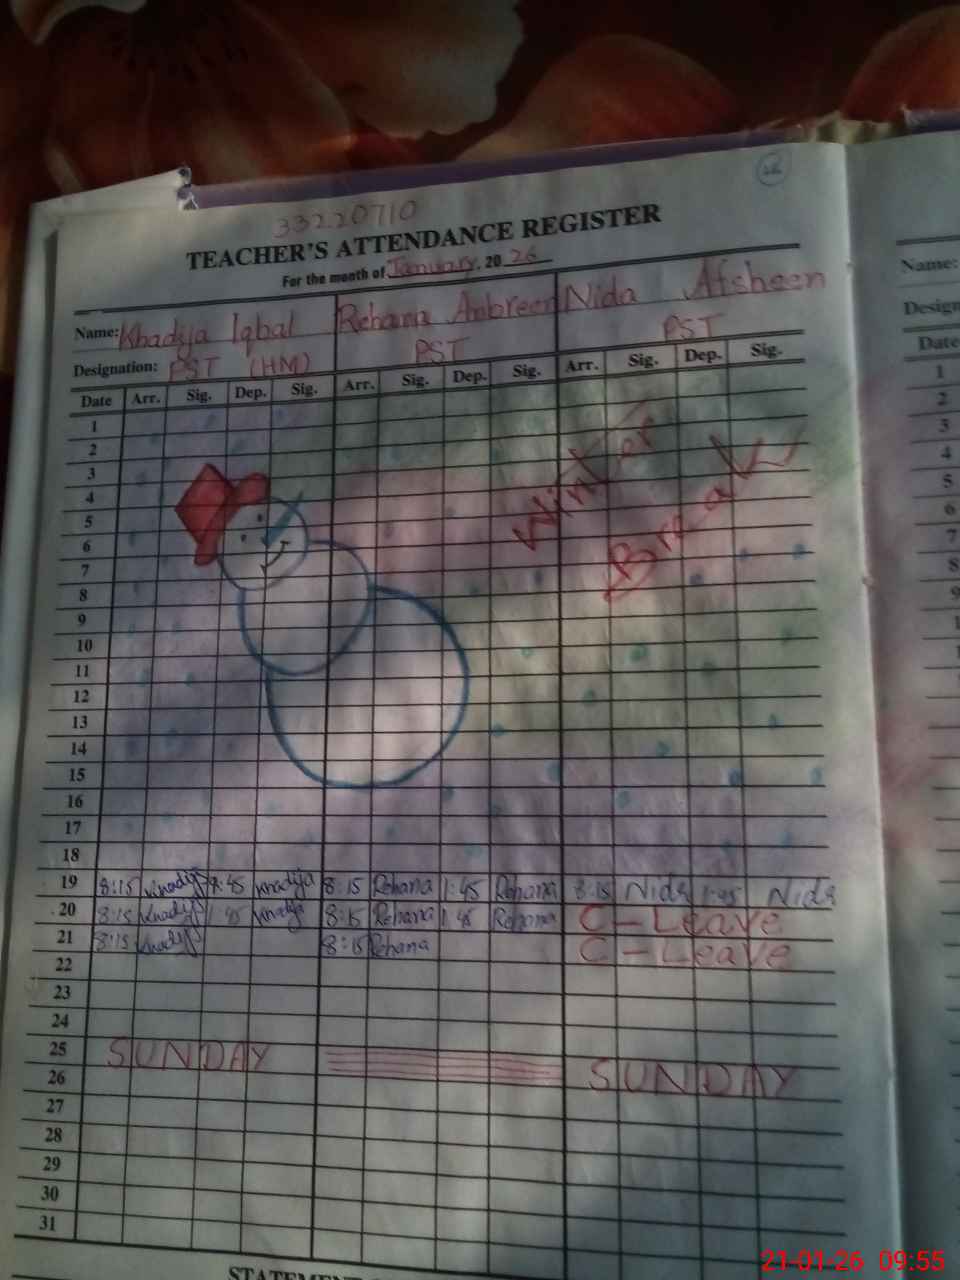 33220710
TEACHER'S ATTENDANCE REGISTER
For the month of January, 2026
Name: Khadija Iqbal Rehana Ambreen Nida Afsheen
Designation: PST (HM) PST PST
Date Arr. Sig. Dep. Sig. Arr. Sig. Dep. Sig. Arr. Sig. Dep. Sig.
1
2
3
4
5
6
7
8
9
10
11
12
13
14
15
16
17
18
Winter
Break
19 8:15 Khadija 1:45 Khadija 8:15 Rehana 1:45 Rehana 8:15 Nida 1:45 Nida
20 8:15 Khadija 1:45 Khadija 8:15 Rehana 1:45 Rehana C-Leave
21 8:15 Khadija 8:15 Rehana C-Leave
22
23
24
25 SUNDAY SUNDAY
26
27
28
29
30
31
Name:
Date
1
2
3
4
5
6
7
8
9
21-01-26 09:55